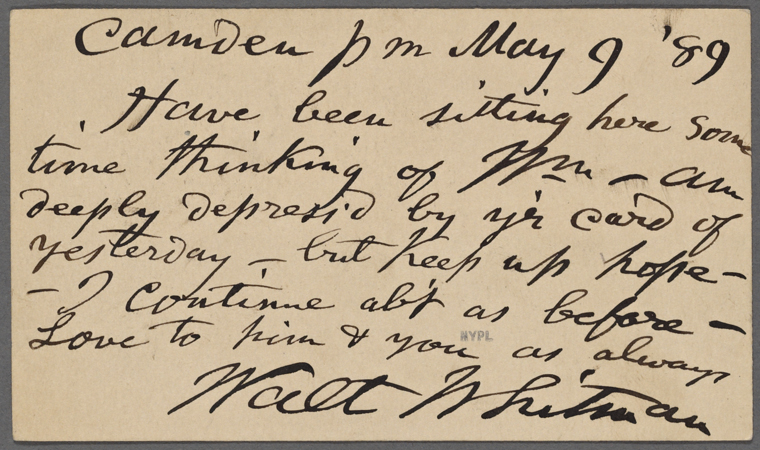 Camden pm May 9 '89
Have been sitting here some
time thinking of Wm – am
deeply depress'd by y'r card of
yesterday – but keep up hope –
– I continue ab't as before –
Love to him & you as always
NYPL
Walt Whitman